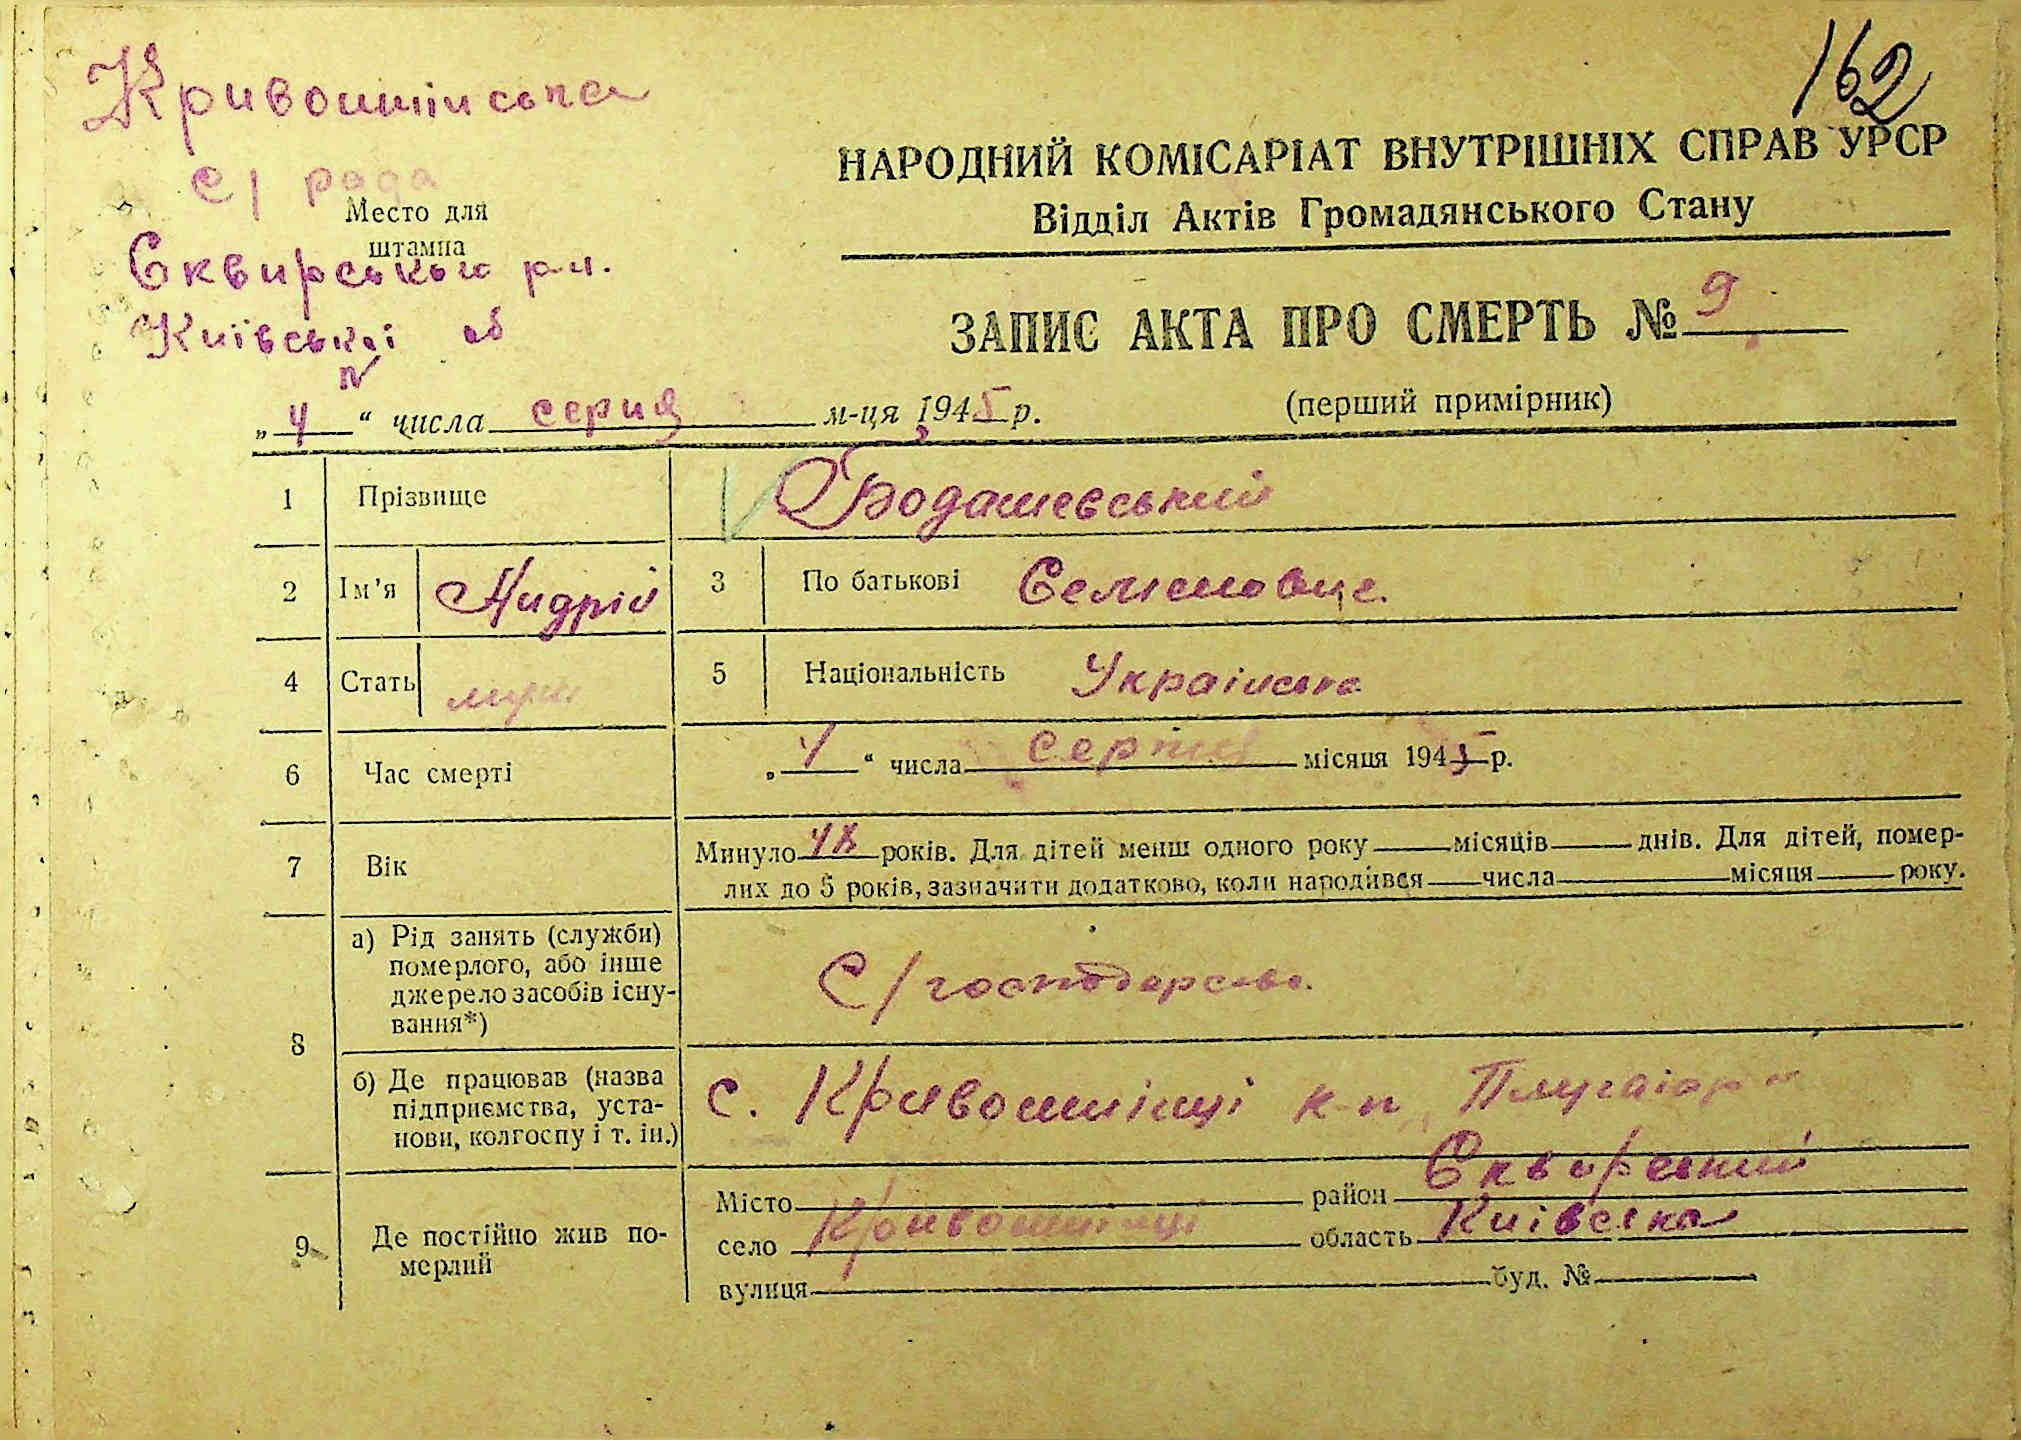 162
Кривошиїнська
с/ рада
Место для
штампа
Сквирського р-н.
Київської об
НАРОДНИЙ КОМІСАРІАТ ВНУТРІШНІХ СПРАВ УРСР
Відділ Актів Громадянського Стану
ЗАПИС АКТА ПРО СМЕРТЬ № 9
(перший примірник)
„ 4 “ числа серпня м-ця 1945 р.
1 Прізвище Бодашевський
2 Ім’я Андрій 3 По батькові Семенович
4 Стать муж 5 Національність Українська
6 Час смерті „ 4 “ числа серпня місяця 1945 р.
7 Вік Минуло 48 років. Для дітей менш одного року місяців днів. Для дітей, помер-
лих до 5 років, зазначити додатково, коли народився числа місяця року.
8 а) Рід занять (служби)
померлого, або інше
джерело засобів існу-
вання*)
С/господарство.
б) Де працював (назва
підприємства, уста-
нови, колгоспу і т. ін.)
с. Кривошиїнці к-п „Плугатар“
9 Де постійно жив по-
мерлий
Місто район Сквирський
село Кривошиїнці область Київська
вулиця буд. №